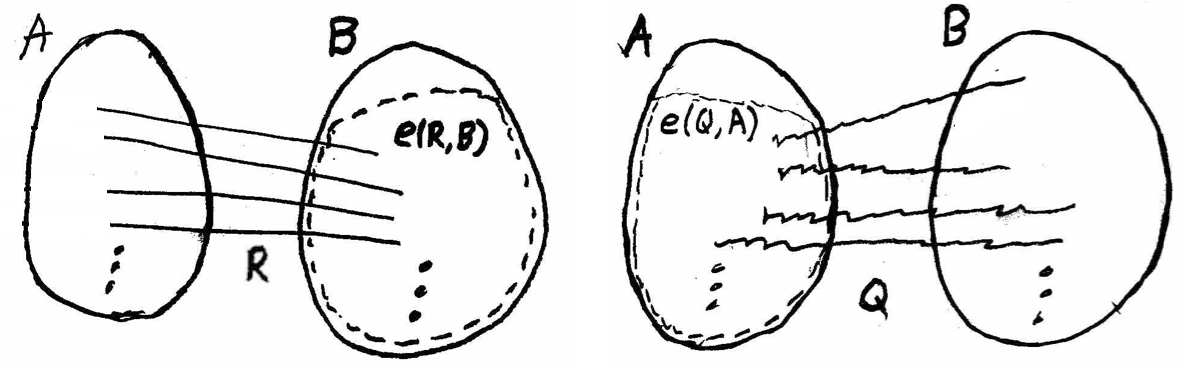 A
B
e(R,B)
R
A
B
e(Q,A)
Q